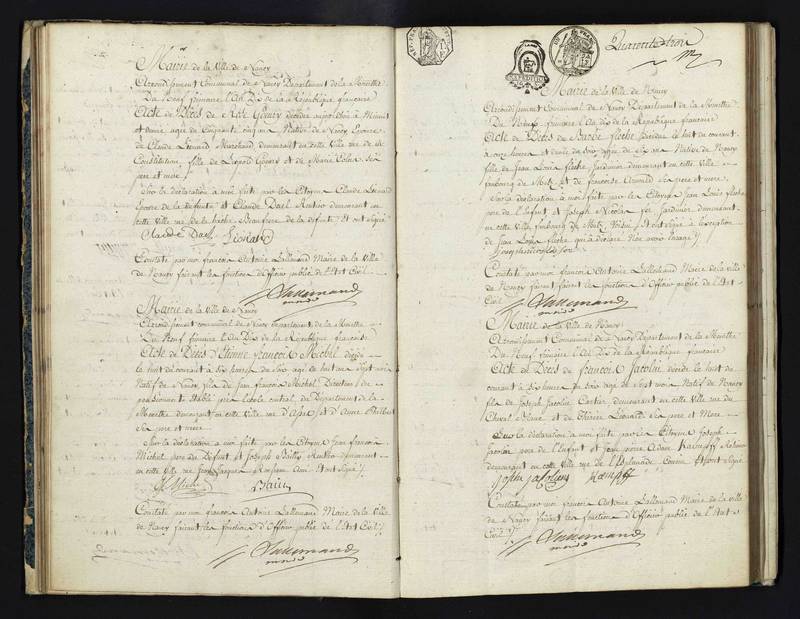 Mairie de la Ville de Nancy
Arrondissement Communal de Nancy Département de la Meurthe
Du Neuf frimaire l'An Dix de la République française
Acte de Décès de
et demie agée de Cinquante cinq ans Native de Nancy Epouse
de Claude Léonard demeurant en cette Ville rue de la
Constitution, fille de Léopold et de Marie
père et mère
Sur la déclaration à moi faite par les Citoyens Claude Léonard
Epoux de la défunte et Claude Dael Rentier demeurant en
cette Ville rue de la Beaufrere de la défunte Et ont signé
Claude Dael Léonard
Constaté par moi françois Antoine Lallemand Maire de la Ville
de Nancy faisant les fonctions d'Officier public de l'Etat Civil
Lallemand
Mairie de la Ville de Nancy
Arrondissement communal de Nancy département de la Meurthe
Du Neuf frimaire l'An Dix de la République française
Acte de Décès d'Etienne françois Michel décédé
le huit du courant à Six heures du Soir agé de huit ans Sept mois
Natif de Nancy fils de Jean françois Michel Directeur du
pensionnat établi près l'école central du Département de la
Meurthe demeurant en cette Ville rue et d'Anne
Ses père et mère
Sur la déclaration à moi faite par les Citoyens Jean françois
Michel père du défunt et Joseph Bailly Rentier demeurant
en cette Ville rue Jean Jacques Rousseau Ami Et ont Signé
Michel Bailly
Constaté par moi françois Antoine Lallemand Maire de la Ville
de Nancy faisant les fonctions d'Officier public de l'Etat Civil
Lallemand
Quarante trois
Mairie de la Ville de Nancy
Arrondissement Communal de Nancy Département de la Meurthe
Du Neuf frimaire l'An Dix de la République française
Acte de Décès de Barbe floche décédée le huit du courant
à onze heures et demie du Soir agée de Six ans Native de Nancy
fille de Jean Louis floche Jardinier demeurant en cette Ville
faubourg de Metz et de françoise Ses père et mère
Sur la déclaration à moi faite par les Citoyens Jean Louis floche
père de l'Enfant et Joseph Nicolas Jardinier demeurant
en cette Ville faubourg de Metz Voisin Et ont signé à l'exception
de Jean Louis floche qui a déclaré N'en avoir l'usage
Constaté par moi françois Antoine Lallemand Maire de la Ville
de Nancy faisant les fonctions d'Officier public de l'Etat
Civil
Lallemand
Mairie de la Ville de Nancy
Arrondissement Communal de Nancy Département de la Meurthe
Du Neuf frimaire l'An Dix de la République française
Acte de Décès de françois Jacolin décédé le huit du
courant à Six heures du Soir agé de Sept mois Natif de Nancy
fils de Joseph Jacolin demeurant en cette Ville rue du
Cheval Blanc et de Thérèse Léonard Ses père et Mère
Sur la déclaration à moi faite par les Citoyens Joseph
Jacolin père de l'Enfant et Jean pierre Adam Kaempff
demeurant en cette Ville rue de l'Esplanade Et ont Signé
Joseph Jacolin Kaempff
Constaté par moi françois Antoine Lallemand Maire de la Ville
de Nancy faisant les fonctions d'Officier public de l'Etat
Civil
Lallemand